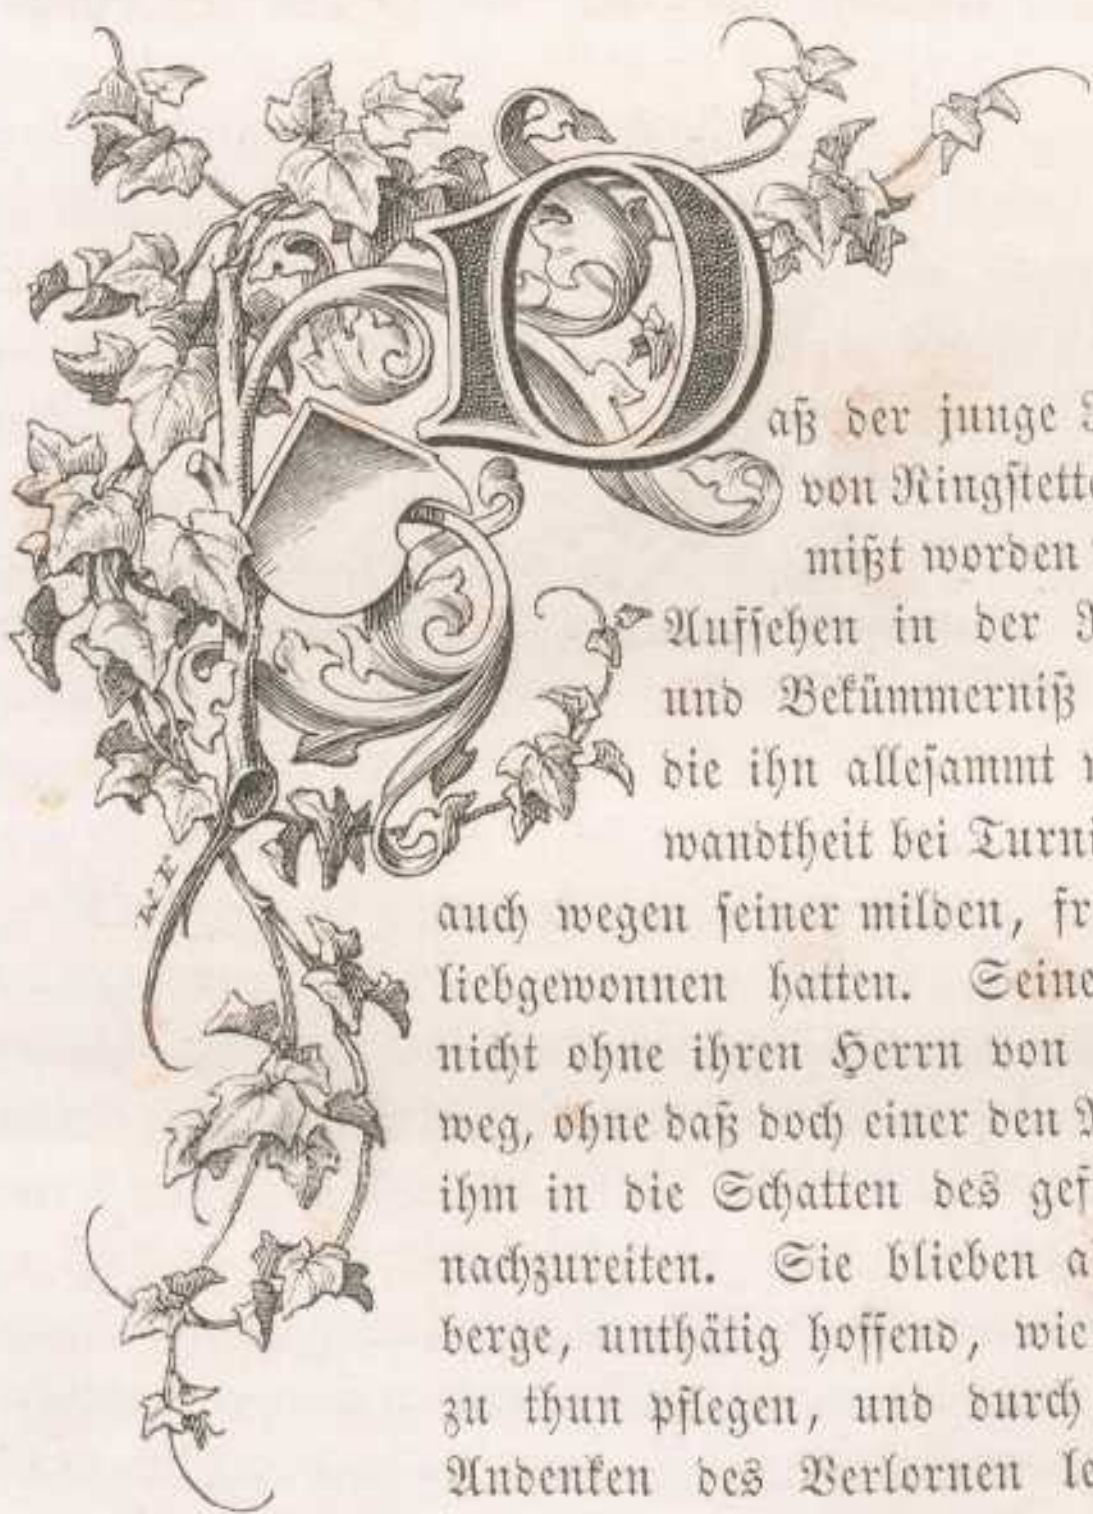 Daß der junge
von Ringstette
mißt worden
Aufsehen in der
und Bekümmerniß
die ihn allesammt
wandtheit bei Turni
auch wegen seiner milden, fr
liebgewonnen hatten. Seine
nicht ohne ihren Herrn von
weg, ohne daß doch einer den
ihm in die Schatten des gef
nachzureiten. Sie blieben a
berge, unthätig hoffend, wie
zu thun pflegen, und durch
Andenken des Verlornen le